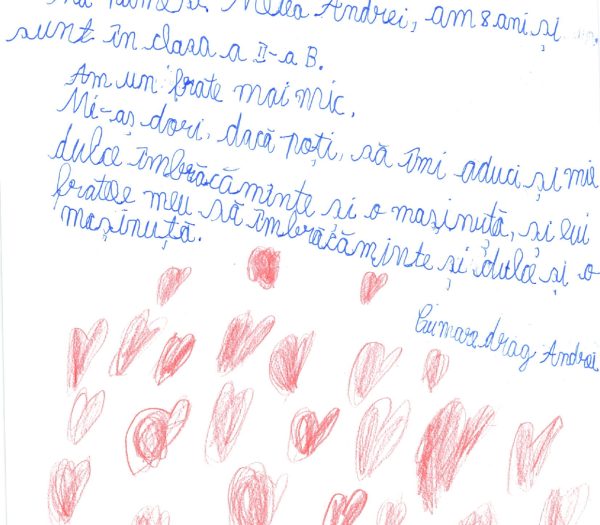 numesc Andrei, am 8 ani și
sunt în clasa a II-a B.
Am un frate mai mic.
Mi-aș dori, dacă poți, să îmi aduci și mie
dulce îmbrăcăminte și o mașinuță, și lui
fratele meu să îmbrăcăminte și dulce și o
mașinuță.
Cu mare drag Andrei